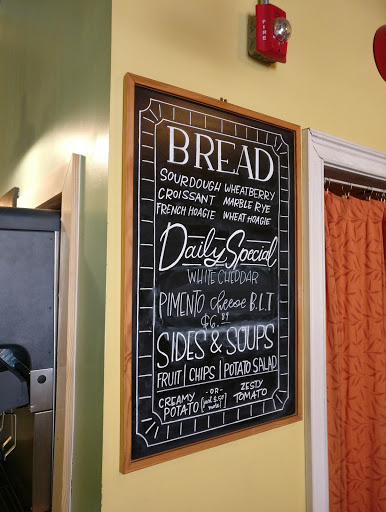 FIRE
BREAD
SOURDOUGH WHEATBERRY
CROISSANT MARBLE RYE
FRENCH HOAGIE WHEAT HOAGIE
Daily Special
WHITE CHEDDAR
PIMENTO cheese B.L.T
$6.99
SIDES & SOUPS
FRUIT | CHIPS | POTATO SALAD
-OR-
CREAMY POTATO [just $.50 more] ZESTY TOMATO